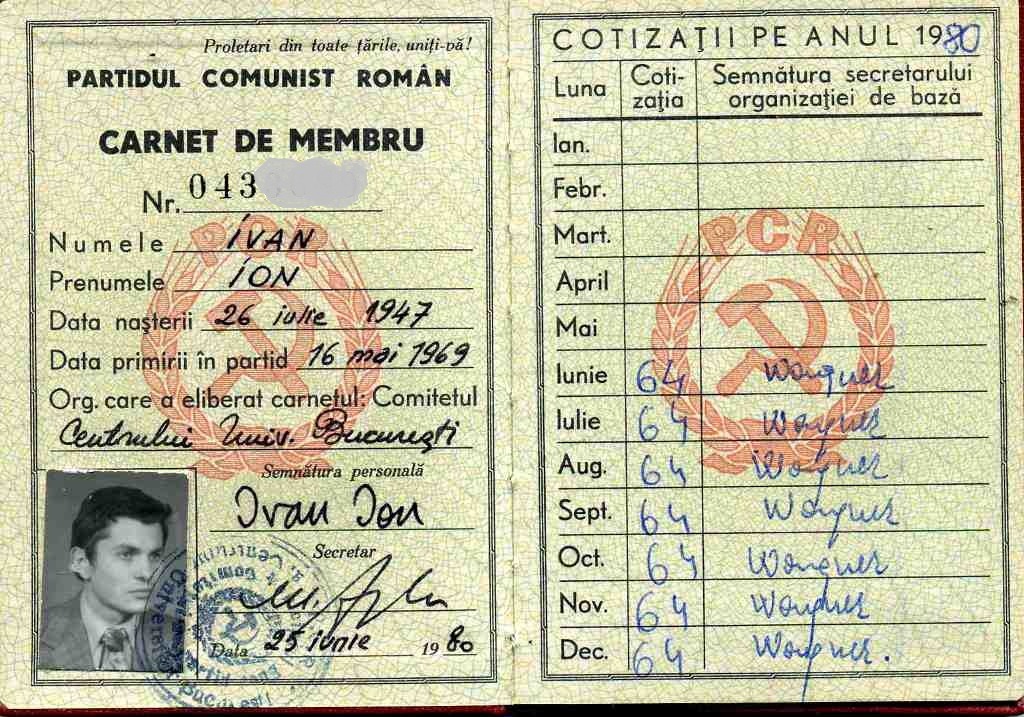 Proletari din toate țările, uniți-vă!
PARTIDUL COMUNIST ROMÂN
CARNET DE MEMBRU
Nr. 043
PCR
Numele IVAN
Prenumele ION
Data nașterii 26 iulie 1947
Data primirii în partid 16 mai 1969
Org. care a eliberat carnetul: Comitetul
Centrului Univ. București
Semnătura personală
Ivan Ion
Secretar
Data 25 iunie 1980
COTIZAȚII PE ANUL 1980
Luna Cotizația Semnătura secretarului organizației de bază
PCR
Ian.
Febr.
Mart.
April
Mai
Iunie 64
Iulie 64
Aug. 64
Sept. 64
Oct. 64
Nov. 64
Dec. 64